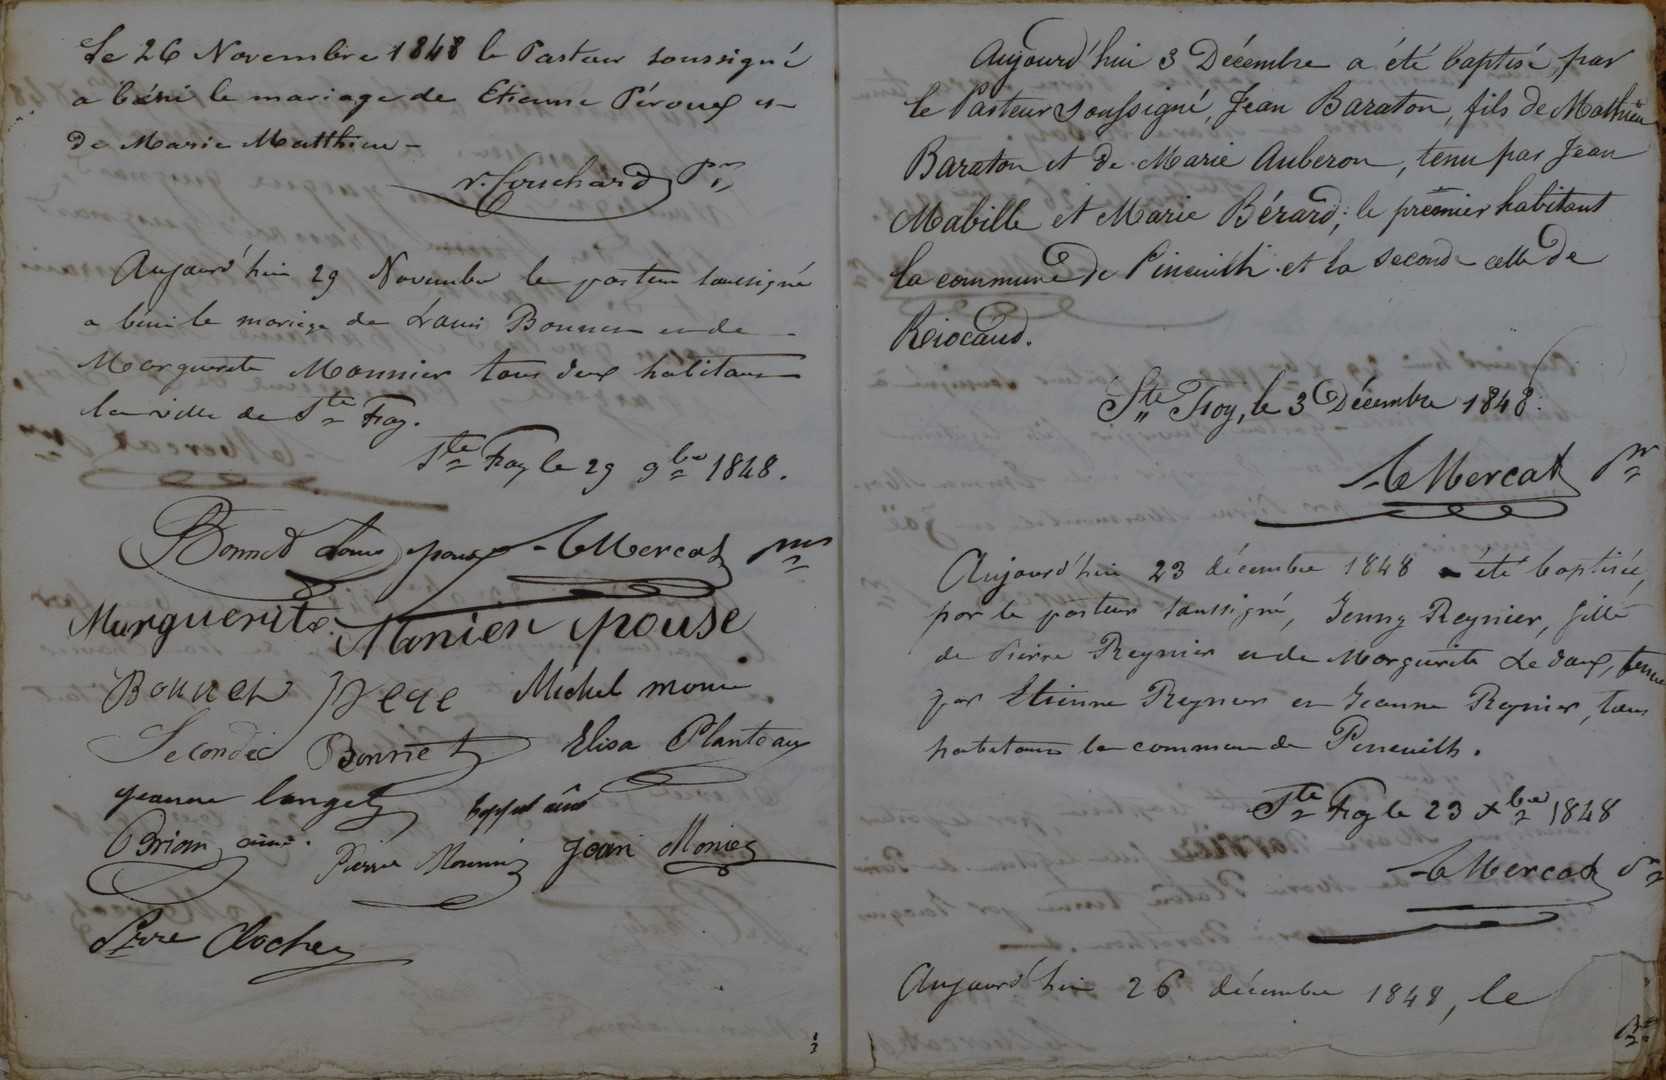 Le 26 Novembre 1848 le Pasteur soussigné
a béni le mariage de Etienne Péroux et
de Marie Matthieu -
Pr
Aujourd'hui 29 Novembre le pasteur soussigné
a béni le mariage de Louis Bonnet et de
Marguerite Monnier tous deux habitans
la ville de Ste Foy.
Ste Foy le 29 9bre 1848.
Bonnet Louis epoux LeMercat
Marguerite Monier epouse
Bonnet Pere Michel
Bonnet Elisa Planteau
jeanne
Brian ainé. Pierre Jean Monier
Pierre Clochey
Aujourd'hui 3 Décembre a été baptisé, par
le Pasteur soussigné, Jean Baraton, fils de Mathieu
Baraton et de Marie Auberon, tenu par Jean
Mabille et Marie Bérard; le premier habitant
la commune de Pineuilh et la seconde celle de
Riocaud.
Ste Foy, le 3 Décembre 1848.
LeMercat Pr
Aujourd'hui 23 décembre 1848 a été baptisée,
par le pasteur soussigné, Jenny Reynier, fille
de Pierre Reynier et de Marguerite Ledoux, tenue
par Etienne Reynier et Jeanne Reynier, tous
habitans la commune de Pineuilh.
Ste Foy le 23 Xbre 1848
LeMercat Pr
Aujourd'hui 26 décembre 1848, le